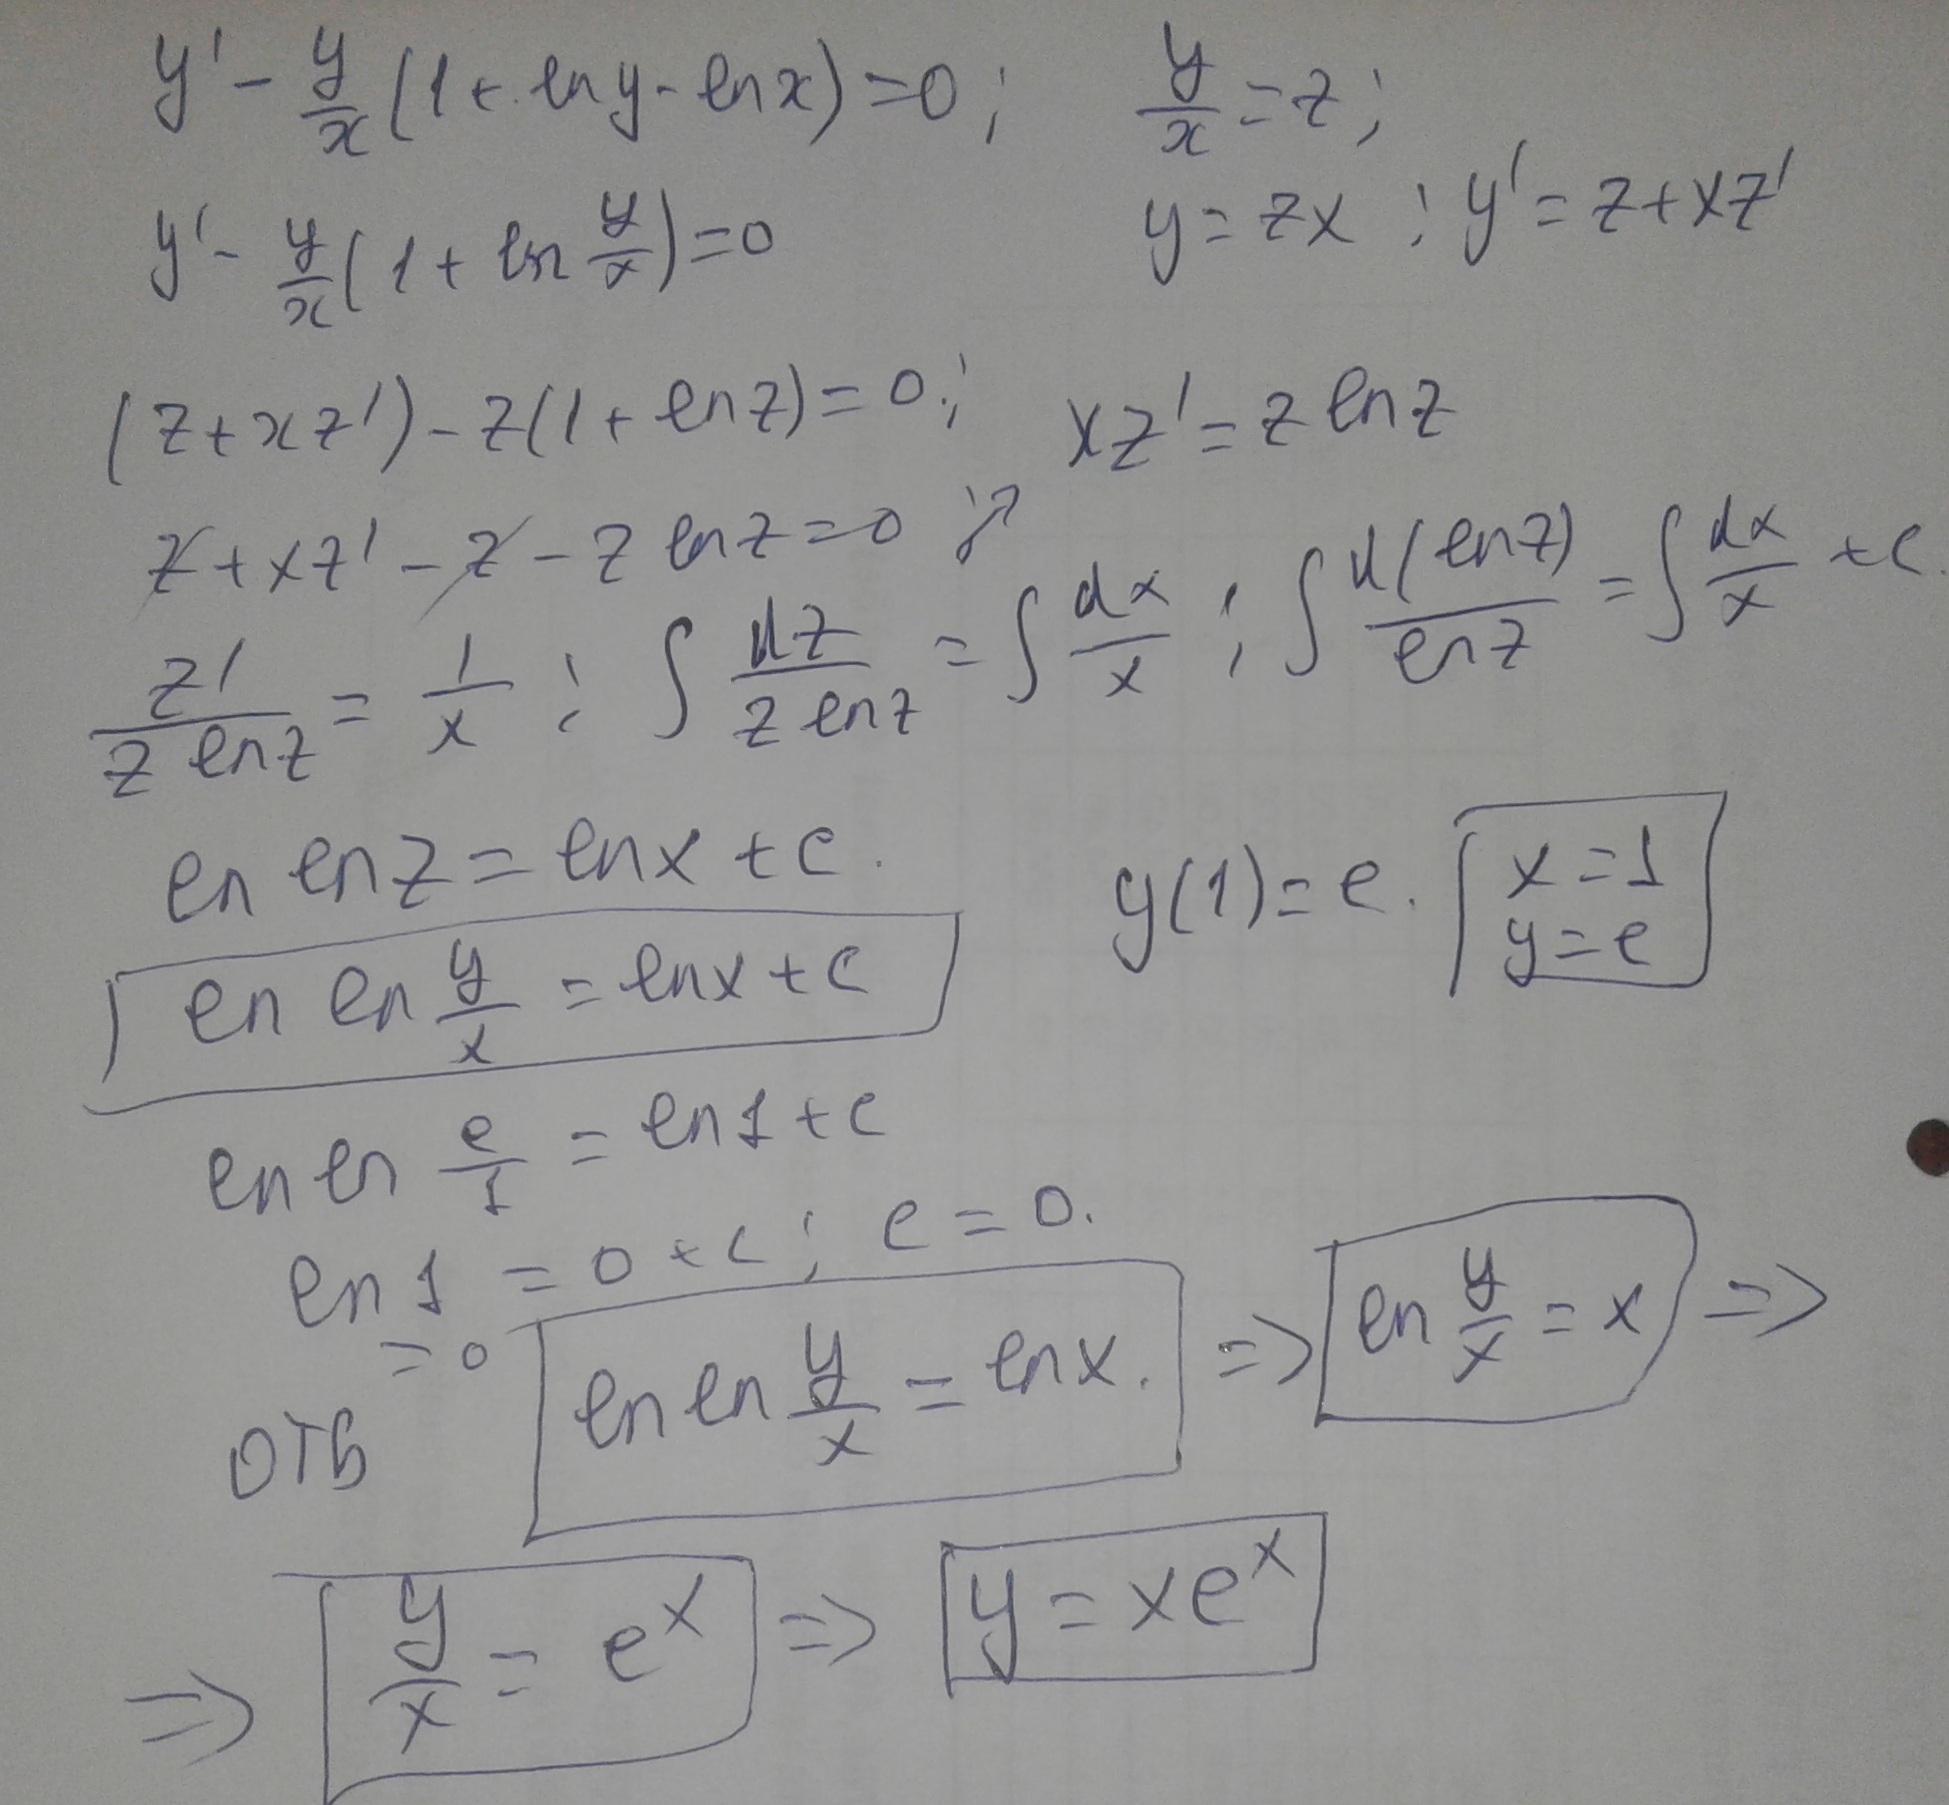 y' - y/x (1 + ln y - ln x) = 0; y/x = z;
y' - y/x (1 + ln y/x) = 0 y = zx; y' = z + xz'
(z + xz') - z(1 + ln z) = 0; xz' = z ln z
z + xz' - z - z ln z = 0; ↗
z'/(z ln z) = 1/x; ∫ dz/(z ln z) = ∫ dx/x; ∫ d(ln z)/ln z = ∫ dx/x + c.
ln ln z = ln x + c. y(1) = e. x = 1
y = e
ln ln y/x = ln x + c
ln ln e/1 = ln 1 + c
ln 1 = 0 + c; c = 0.
= 0
отв ln ln y/x = ln x. => ln y/x = x =>
=> y/x = e^x => y = xe^x